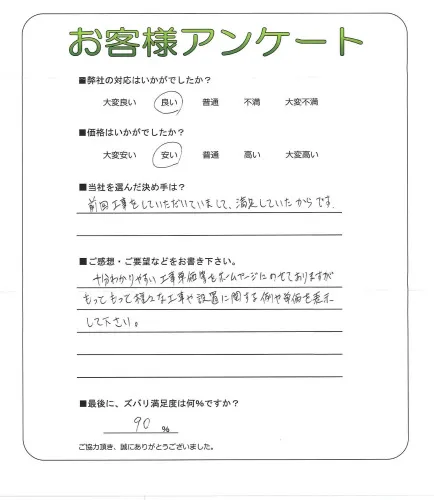 お客様アンケート
■弊社の対応はいかがでしたか?
大変良い 良い 普通 不満 大変不満
■価格はいかがでしたか?
大変安い 安い 普通 高い 大変高い
■当社を選んだ決め手は?
前回工事をしていただいていまして、満足していたからです。
■ご感想・ご要望などをお書き下さい。
十分わかりやすい工事単価等をホームページにのせてありますが
もっともっと様々な工事や設置に関する例や単価を表示
して下さい。
■最後に、ズバリ満足度は何%ですか?
90 %
ご協力頂き、誠にありがとうございました。